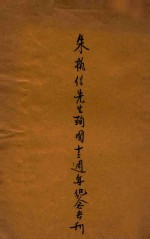 朱執信先生殉國十三週年紀念專刊